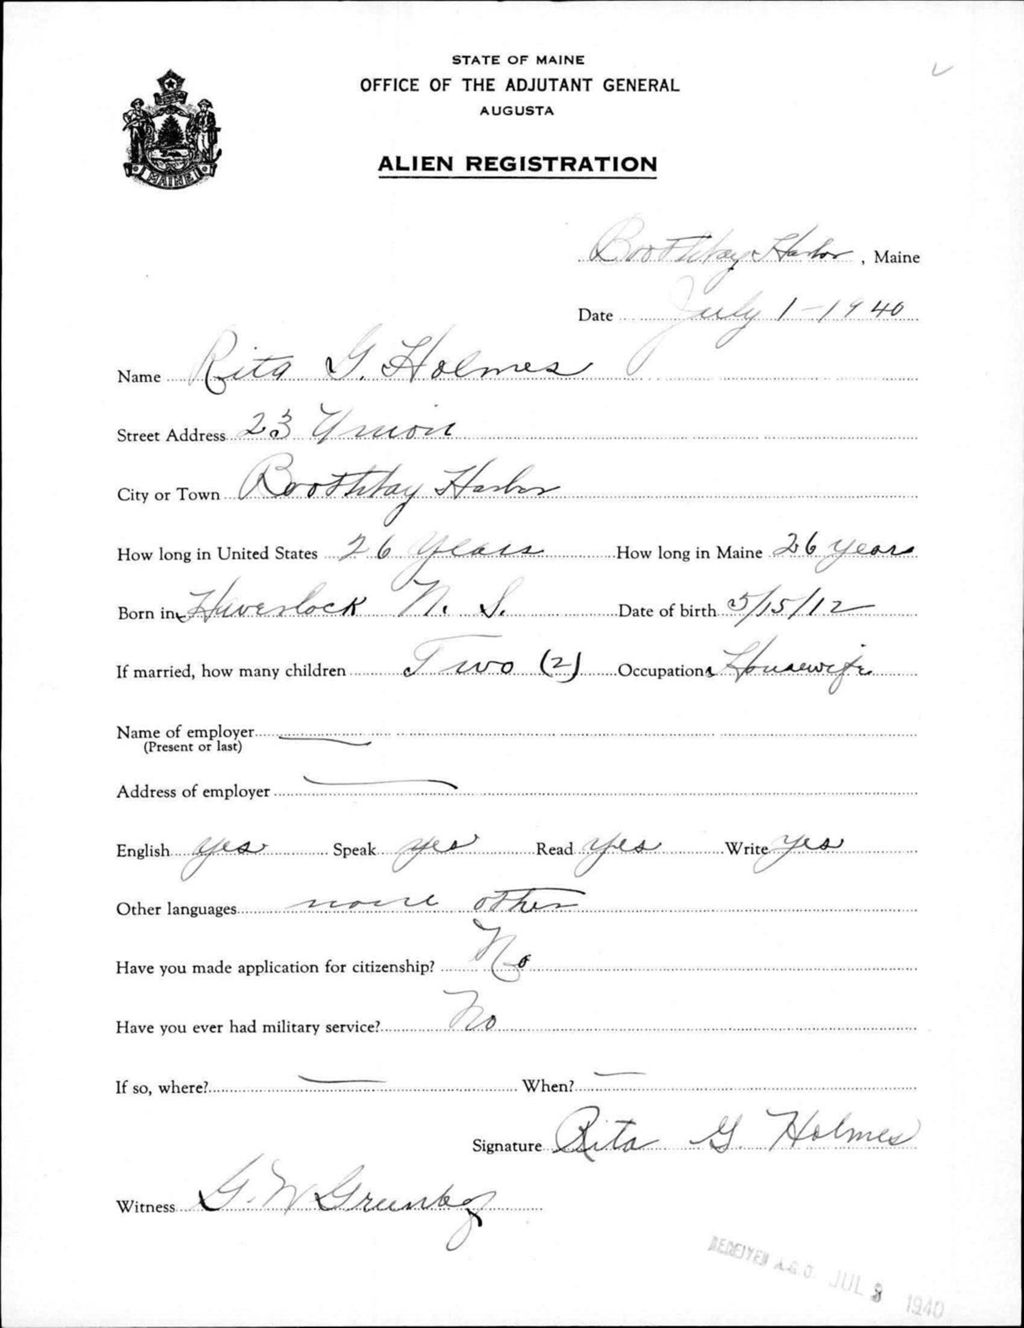 STATE OF MAINE
OFFICE OF THE ADJUTANT GENERAL
AUGUSTA
ALIEN REGISTRATION
MAINE
Boothbay Harbor, Maine
Date July 1-1940
Name Rita G. Holmes
Street Address 23 Union
City or Town Boothbay Harbor
How long in United States 26 Years How long in Maine 26 years
Born in Haverlock N. S. Date of birth 5/15/12
If married, how many children Two (2) Occupation Housewife
Name of employer
(Present or last)
Address of employer
English yes Speak yes Read yes Write yes
Other languages none other
Have you made application for citizenship? No
Have you ever had military service? No
If so, where? When?
Signature Rita G. Holmes
Witness G. W.
RECEIVED A.G.O. JUL 1940